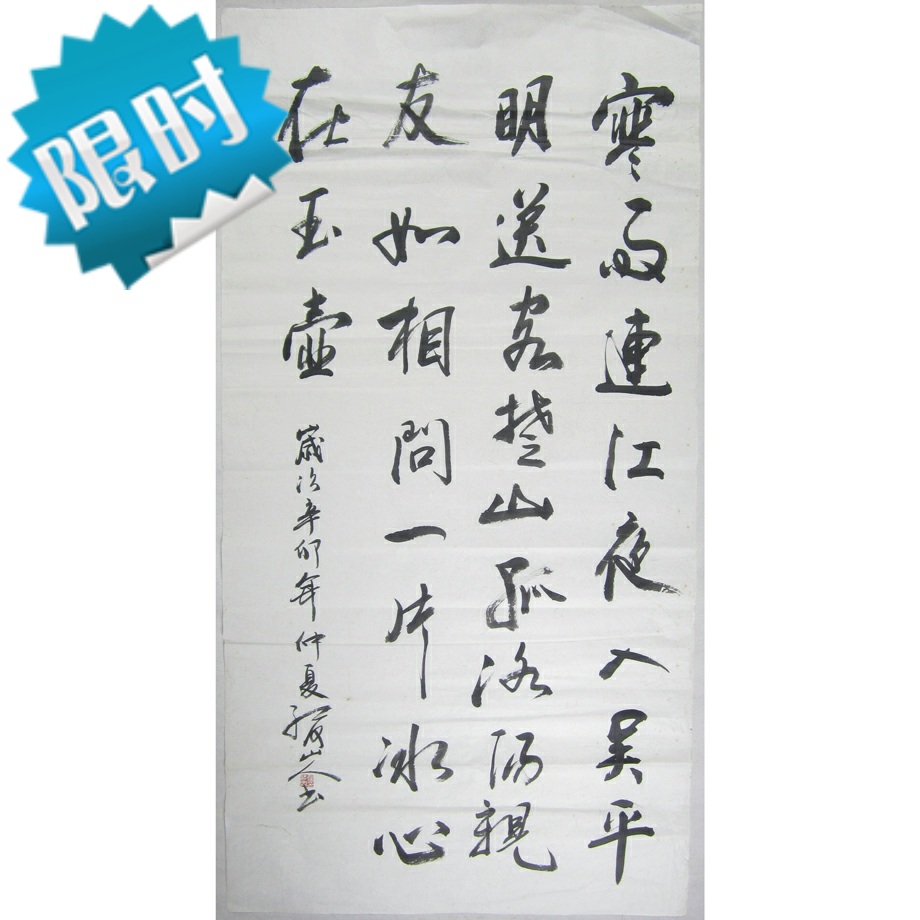 限时
寒雨連江夜入吴平
明送客楚山孤洛陽親
友如相問一片冰心
在玉壺
歲次辛卯年仲夏 山人书